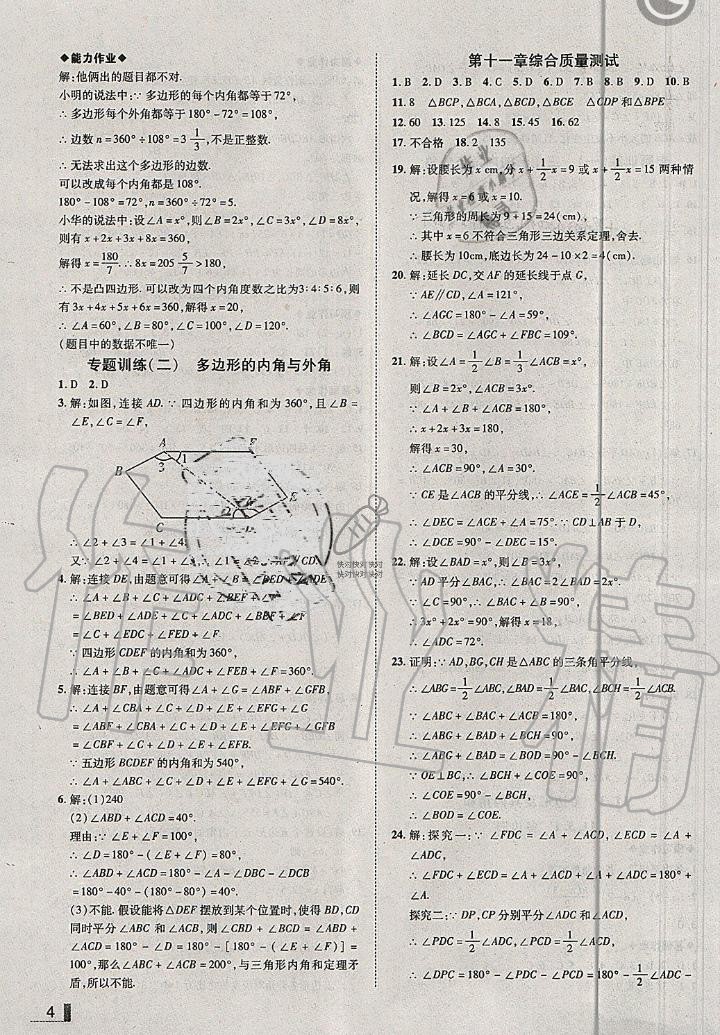 ◆能力作业▶
解:他俩出的题目都不对.
小明的说法中:∵ 多边形的每个内角都等于72°,
∴ 多边形每个外角都等于180°−72°=108°.
∴ 边数n=360°÷108°=3 1/3,不是正整数.
∴ 无法求出这个多边形的边数.
可以改成每个内角都是108°.
180°−108°=72°,n=360°÷72°=5.
小华的说法中:设∠A=x°,则∠B=2x°,∠C=3x°,∠D=8x°.
则有x+2x+3x+8x=360,
解得x=180/7.∴ 8x=205 5/7>180.
∴ 不是凸四边形. 可以改为四个内角度数之比为3∶4∶5∶6,则
有3x+4x+5x+6x=360,解得x=20,
∴ ∠A=60°,∠B=80°,∠C=100°,∠D=120°.
(题目中的数据不唯一)
专题训练(二) 多边形的内角与外角
1.D 2.D
3.解:如图,连接AD.∵ 四边形的内角和为360°,且∠B=
∠E,∠C=∠F,
A F
1
B 3
E
2
C
∴ ∠2+∠3=∠1+∠4.
又∵ ∠2+∠4=∠1+
4.解:连接DE,由题意可得∠A+∠B=∠BED+∠ADE.
∴ ∠A+∠B+∠C+∠ADC+∠FEB+∠F
=∠BED+∠ADE+∠C+∠ADC+∠FEB+∠F
=∠C+∠EDC+∠FED+∠F.
∵ 四边形CDEF的内角和为360°,
∴ ∠A+∠B+∠C+∠ADC+∠FEB+∠F=360°.
5.解:连接BF,由题意可得∠A+∠G=∠ABF+∠GFB,
∴ ∠A+∠CBA+∠C+∠D+∠E+∠EFG+∠G
=∠ABF+∠GFB+∠CBA+∠C+∠D+∠E+∠EFG
=∠CBF+∠C+∠D+∠E+∠BFE.
∵ 五边形BCDEF的内角和为540°,
∴ ∠A+∠ABC+∠C+∠D+∠E+∠EFG+∠G=540°.
6.解:(1)240
(2)∠ABD+∠ACD=40°.
理由:∵ ∠E+∠F=100°,
∴ ∠D=180°−(∠E+∠F)=80°.
∴ ∠ABD+∠ACD=180°−∠A−∠DBC−∠DCB
=180°−40°−(180°−80°)=40°.
(3)不能. 假设能将△DEF摆放到某个位置时,使得BD,CD
同时平分∠ABC和∠ACB,则∠DBC+∠DCB=∠ABD+
∠ACD=180°−∠D=180°−[180°−(∠E+∠F)]=
100°,那么∠ABC+∠ACB=200°,与三角形内角和定理矛
盾,所以不能.
4
第十一章综合质量测试
1.B 2.D 3.B 4.C 5.D 6.D 7.B 8.B 9.D 10.B
11.8 △BCP,△BCA,△BCD,△BCE △CDP和△BPE
12.60 13.125 14.8 15.45 16.62
17.不合格 18.2 135
19.解:设腰长为x cm,分x+1/2x=9或x+1/2x=15两种情
况,解得x=6或x=10.
∵ 三角形的周长为9+15=24(cm),
∴ 其中x=6不符合三角形三边关系定理,舍去.
∴ 腰长为10cm,底边长为24−10−10=4(cm).
20.解:延长DC,交AF的延长线于点G,
∵ AE∥CD,∠A=121°,
∴ ∠AGC=180°−∠A=59°,
∴ ∠BCD=∠AGC+∠GFC=109°.
21.解:设∠A=1/2∠B=1/3∠ACB=x°,
则∠B=2x°,∠ACB=3x°.
∵ ∠A+∠B+∠ACB=180°,
∴ x+2x+3x=180,
解得x=30,
∴ ∠A=30°,∠ACB=90°,
∵ CE是∠ACB的平分线,∴ ∠ACE=1/2∠ACB=45°,
∴ ∠DEC=∠ACE+∠A=75°.∵ CD⊥AB于D,
∴ ∠DCE=90°−∠DEC=15°.
22.解:设∠BAD=x°,∴ ∠B=2x°.
∵ AD平分∠BAC,∴ ∠BAC=2∠BAD=2x°.
∵ ∠C=90°,∴ ∠BAC+∠B=90°,
∴ 2x°+2x°=90°,解得x=
∴ ∠ADC=
23.证明:∵ AD,BG,CH是△ABC的三条角平分线,
∴ ∠ABG=1/2∠ABC,∠BAD=1/2∠BAC,∠BCH=1/2∠ACB.
∵ ∠ABC+∠BAC+∠ACB=180°,
∴ ∠ABG+∠BAD+∠BCH=90°.
∵ ∠BOD=∠ABG+∠BAD,∴ ∠BOD=90°−∠BCH.
∵ OE⊥BC,∴ ∠COE=90°−∠BCH,
∴ ∠BOD=∠COE.
24.解:探究一:∵ ∠FDC=∠A+∠ACD,∠ECD=∠A+
∠ADC,
∴ ∠FDC+∠ECD=∠A+∠ACD+∠A+∠ADC=180°+
∠A.
探究二:∵ DP,CP分别平分∠ADC和∠ACD,
∴ ∠PDC=1/2∠ADC,∠PCD=1/2∠ACD,
∴ ∠DPC=180°−∠PDC−∠PCD=180°−1/2∠ADC−